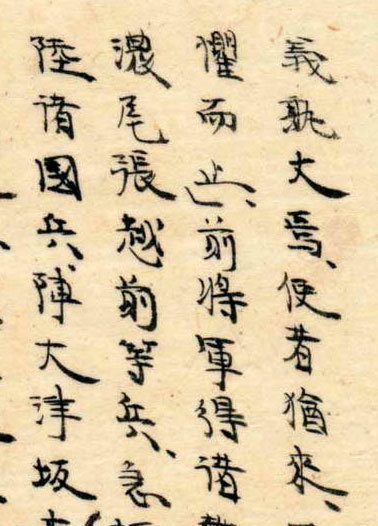 義孰大焉、使者猶來、
懼而止、前将軍得諸
濃尾張越前等兵、急
陸諸國兵、陣大津坂